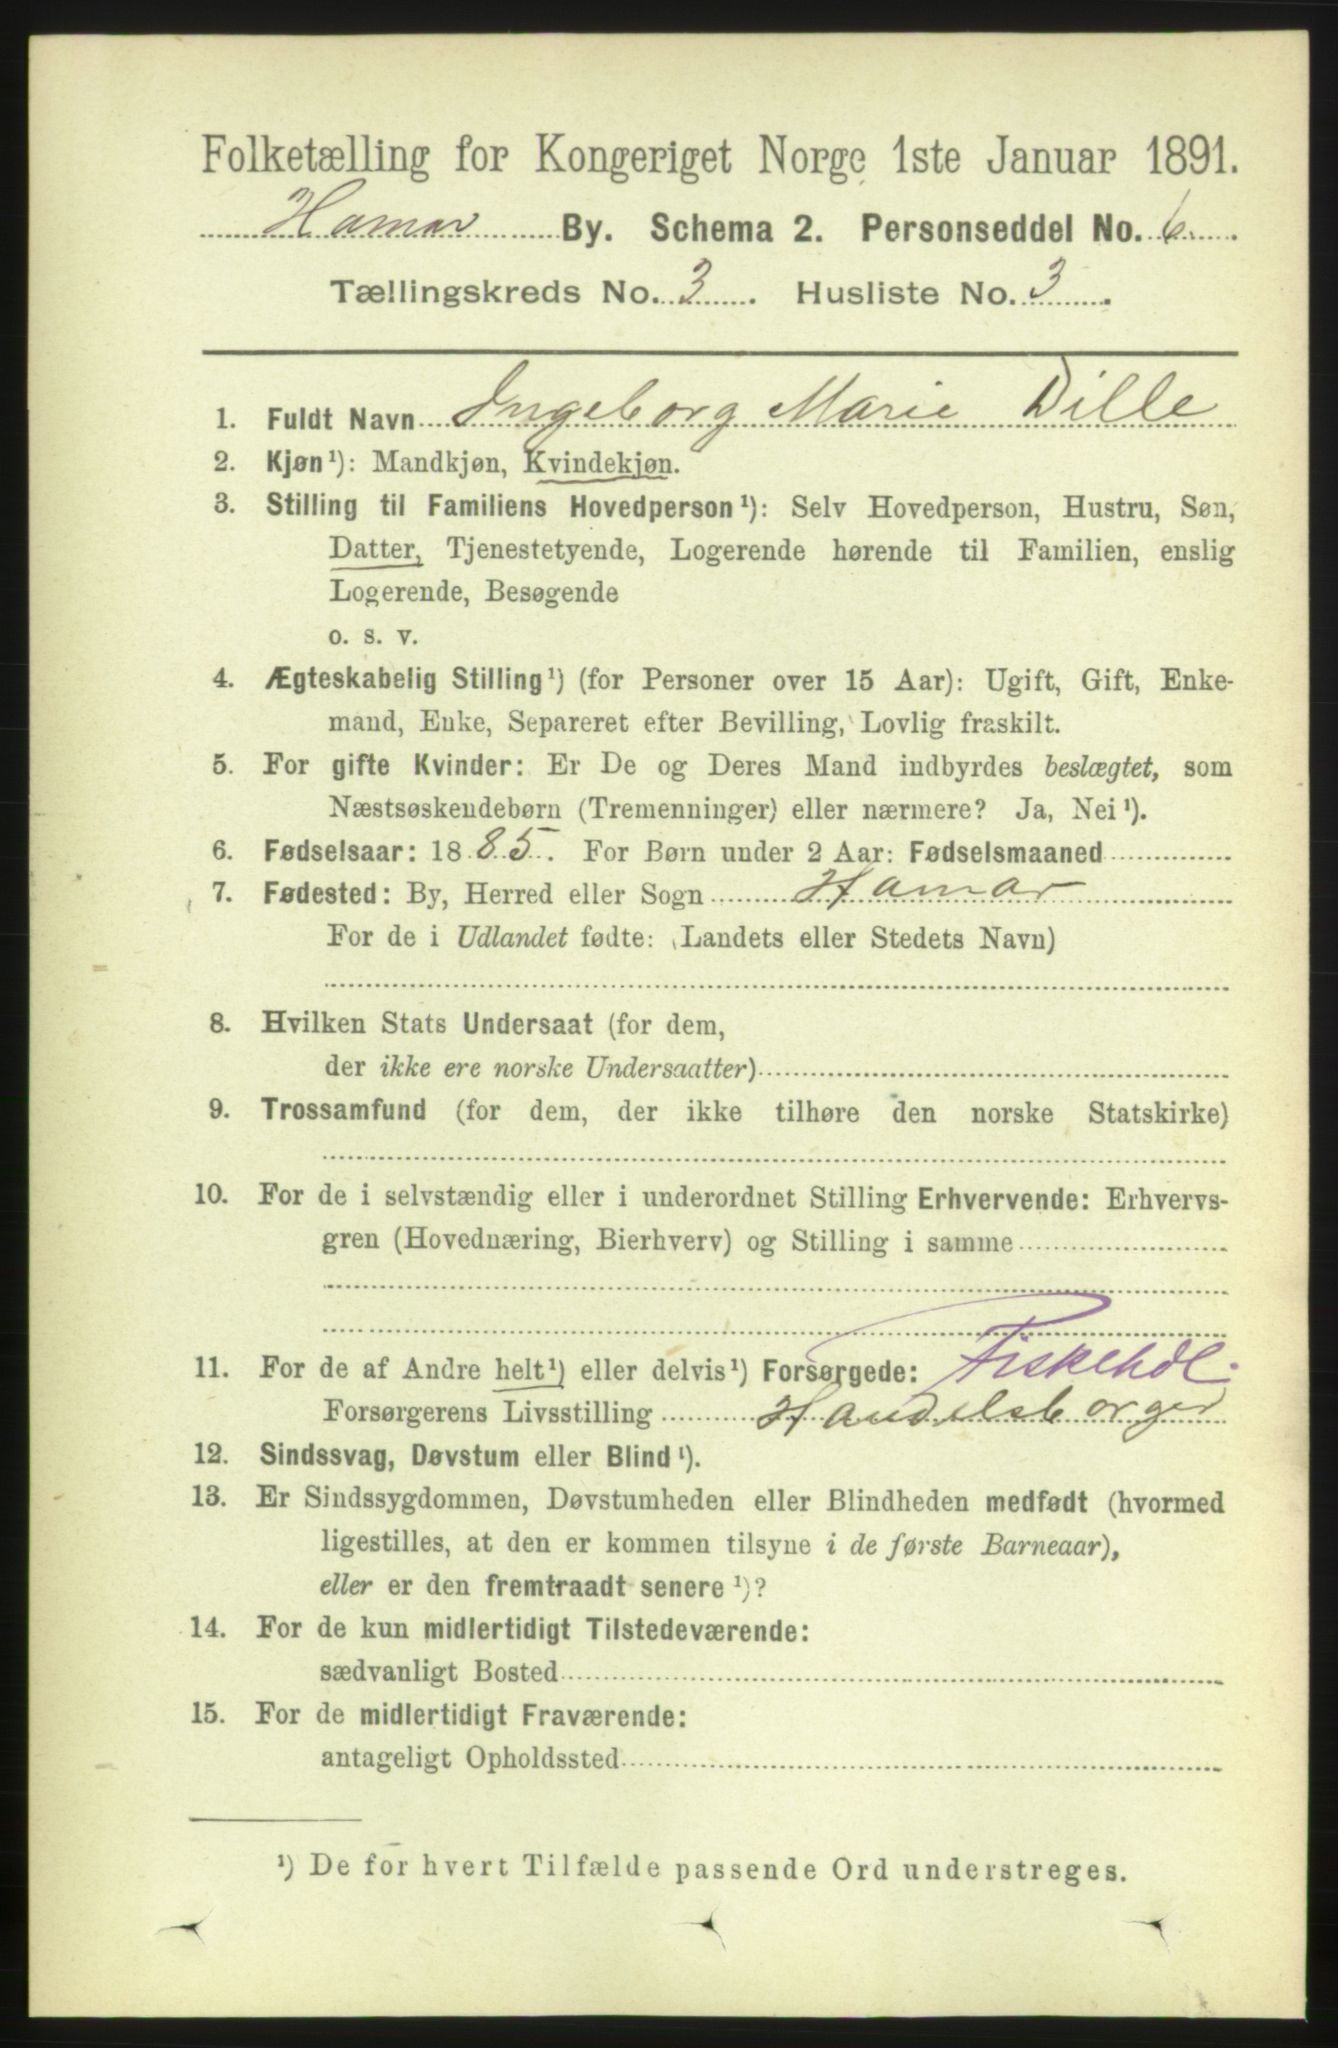 Folketælling for Kongeriget Norge 1ste Januar 1891.
Hamar By. Schema 2. Personseddel No. 6.
Tællingskreds No. 3. Husliste No. 3.
1. Fuldt Navn Ingeborg Marie Dille
2. Kjøn¹): Mandkjøn, Kvindekjøn.
3. Stilling til Familiens Hovedperson¹): Selv Hovedperson, Hustru, Søn,
Datter, Tjenestetyende, Logerende hørende til Familien, enslig
Logerende, Besøgende
o. s. v.
4. Ægteskabelig Stilling¹) (for Personer over 15 Aar): Ugift, Gift, Enke-
mand, Enke, Separeret efter Bevilling, Lovlig fraskilt.
5. For gifte Kvinder: Er De og Deres Mand indbyrdes beslægtet, som
Næstsøskendebørn (Tremenninger) eller nærmere? Ja, Nei¹).
6. Fødselsaar: 1885. For Børn under 2 Aar: Fødselsmaaned
7. Fødested: By, Herred eller Sogn Hamar
For de i Udlandet fødte: (Landets eller Stedets Navn)
8. Hvilken Stats Undersaat (for dem,
der ikke ere norske Undersaatter)
9. Trossamfund (for dem, der ikke tilhøre den norske Statskirke)
10. For de i selvstændig eller i underordnet Stilling Erhvervende: Erhvervs-
gren (Hovednæring, Bierhverv) og Stilling i samme
11. For de af Andre helt¹) eller delvis¹) Forsørgede: Fiskehdl.
Forsørgerens Livsstilling Handelsborger
12. Sindssvag, Døvstum eller Blind¹).
13. Er Sindssygdommen, Døvstumheden eller Blindheden medfødt (hvormed
ligestilles, at den er kommen tilsyne i de første Barneaar),
eller er den fremtraadt senere¹)?
14. For de kun midlertidigt Tilstedeværende:
sædvanligt Bosted
15. For de midlertidigt Fraværende:
antageligt Opholdssted
¹) De for hvert Tilfælde passende Ord understreges.